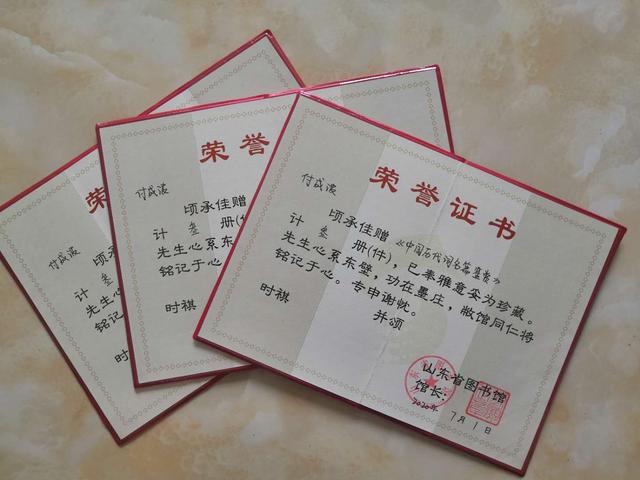 荣誉证书
付成波
顷承佳赠《中国历代词名篇鉴赏》
计 叁 册(件)，已奉雅意妥为珍藏。
先生心系东壁，功在墨庄，敝馆同仁将
铭记于心。专申谢忱。
并颂
时祺
山东省图书馆
馆长：
2020年 7月1日
荣誉
付成波
顷承佳赠
计 叁 册(件)
先生心系东
铭记于心。
时祺
荣
付成波
顷承
计 叁
先生心系
铭记于心
时祺